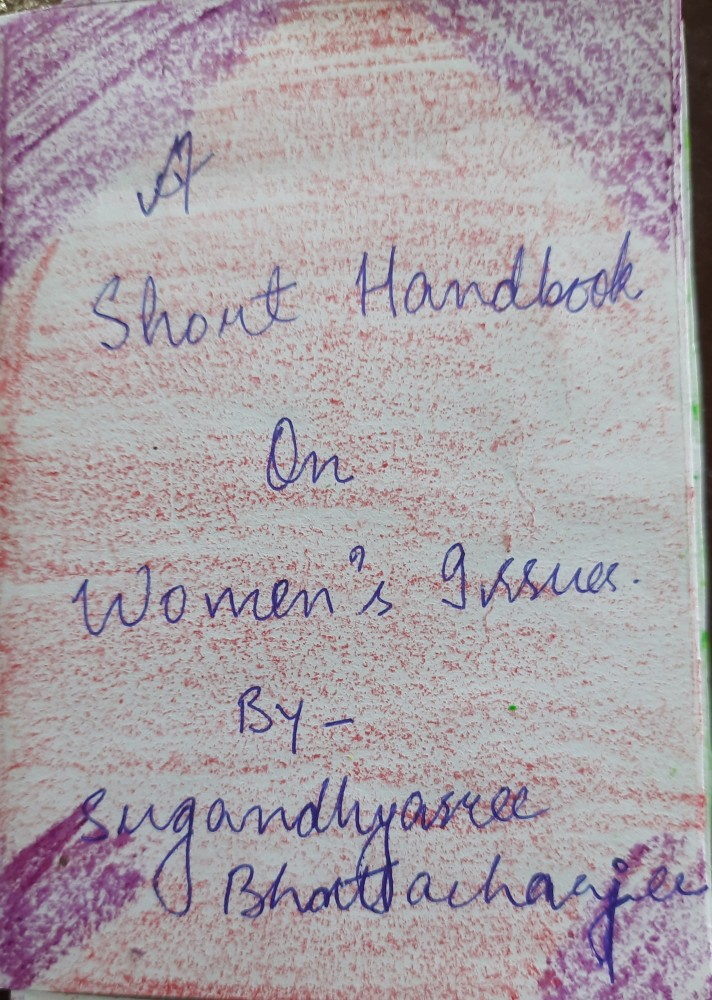 A
Short Handbook
On
Women's Issues.
By -
Sugandhyasree
Bhattacharjee